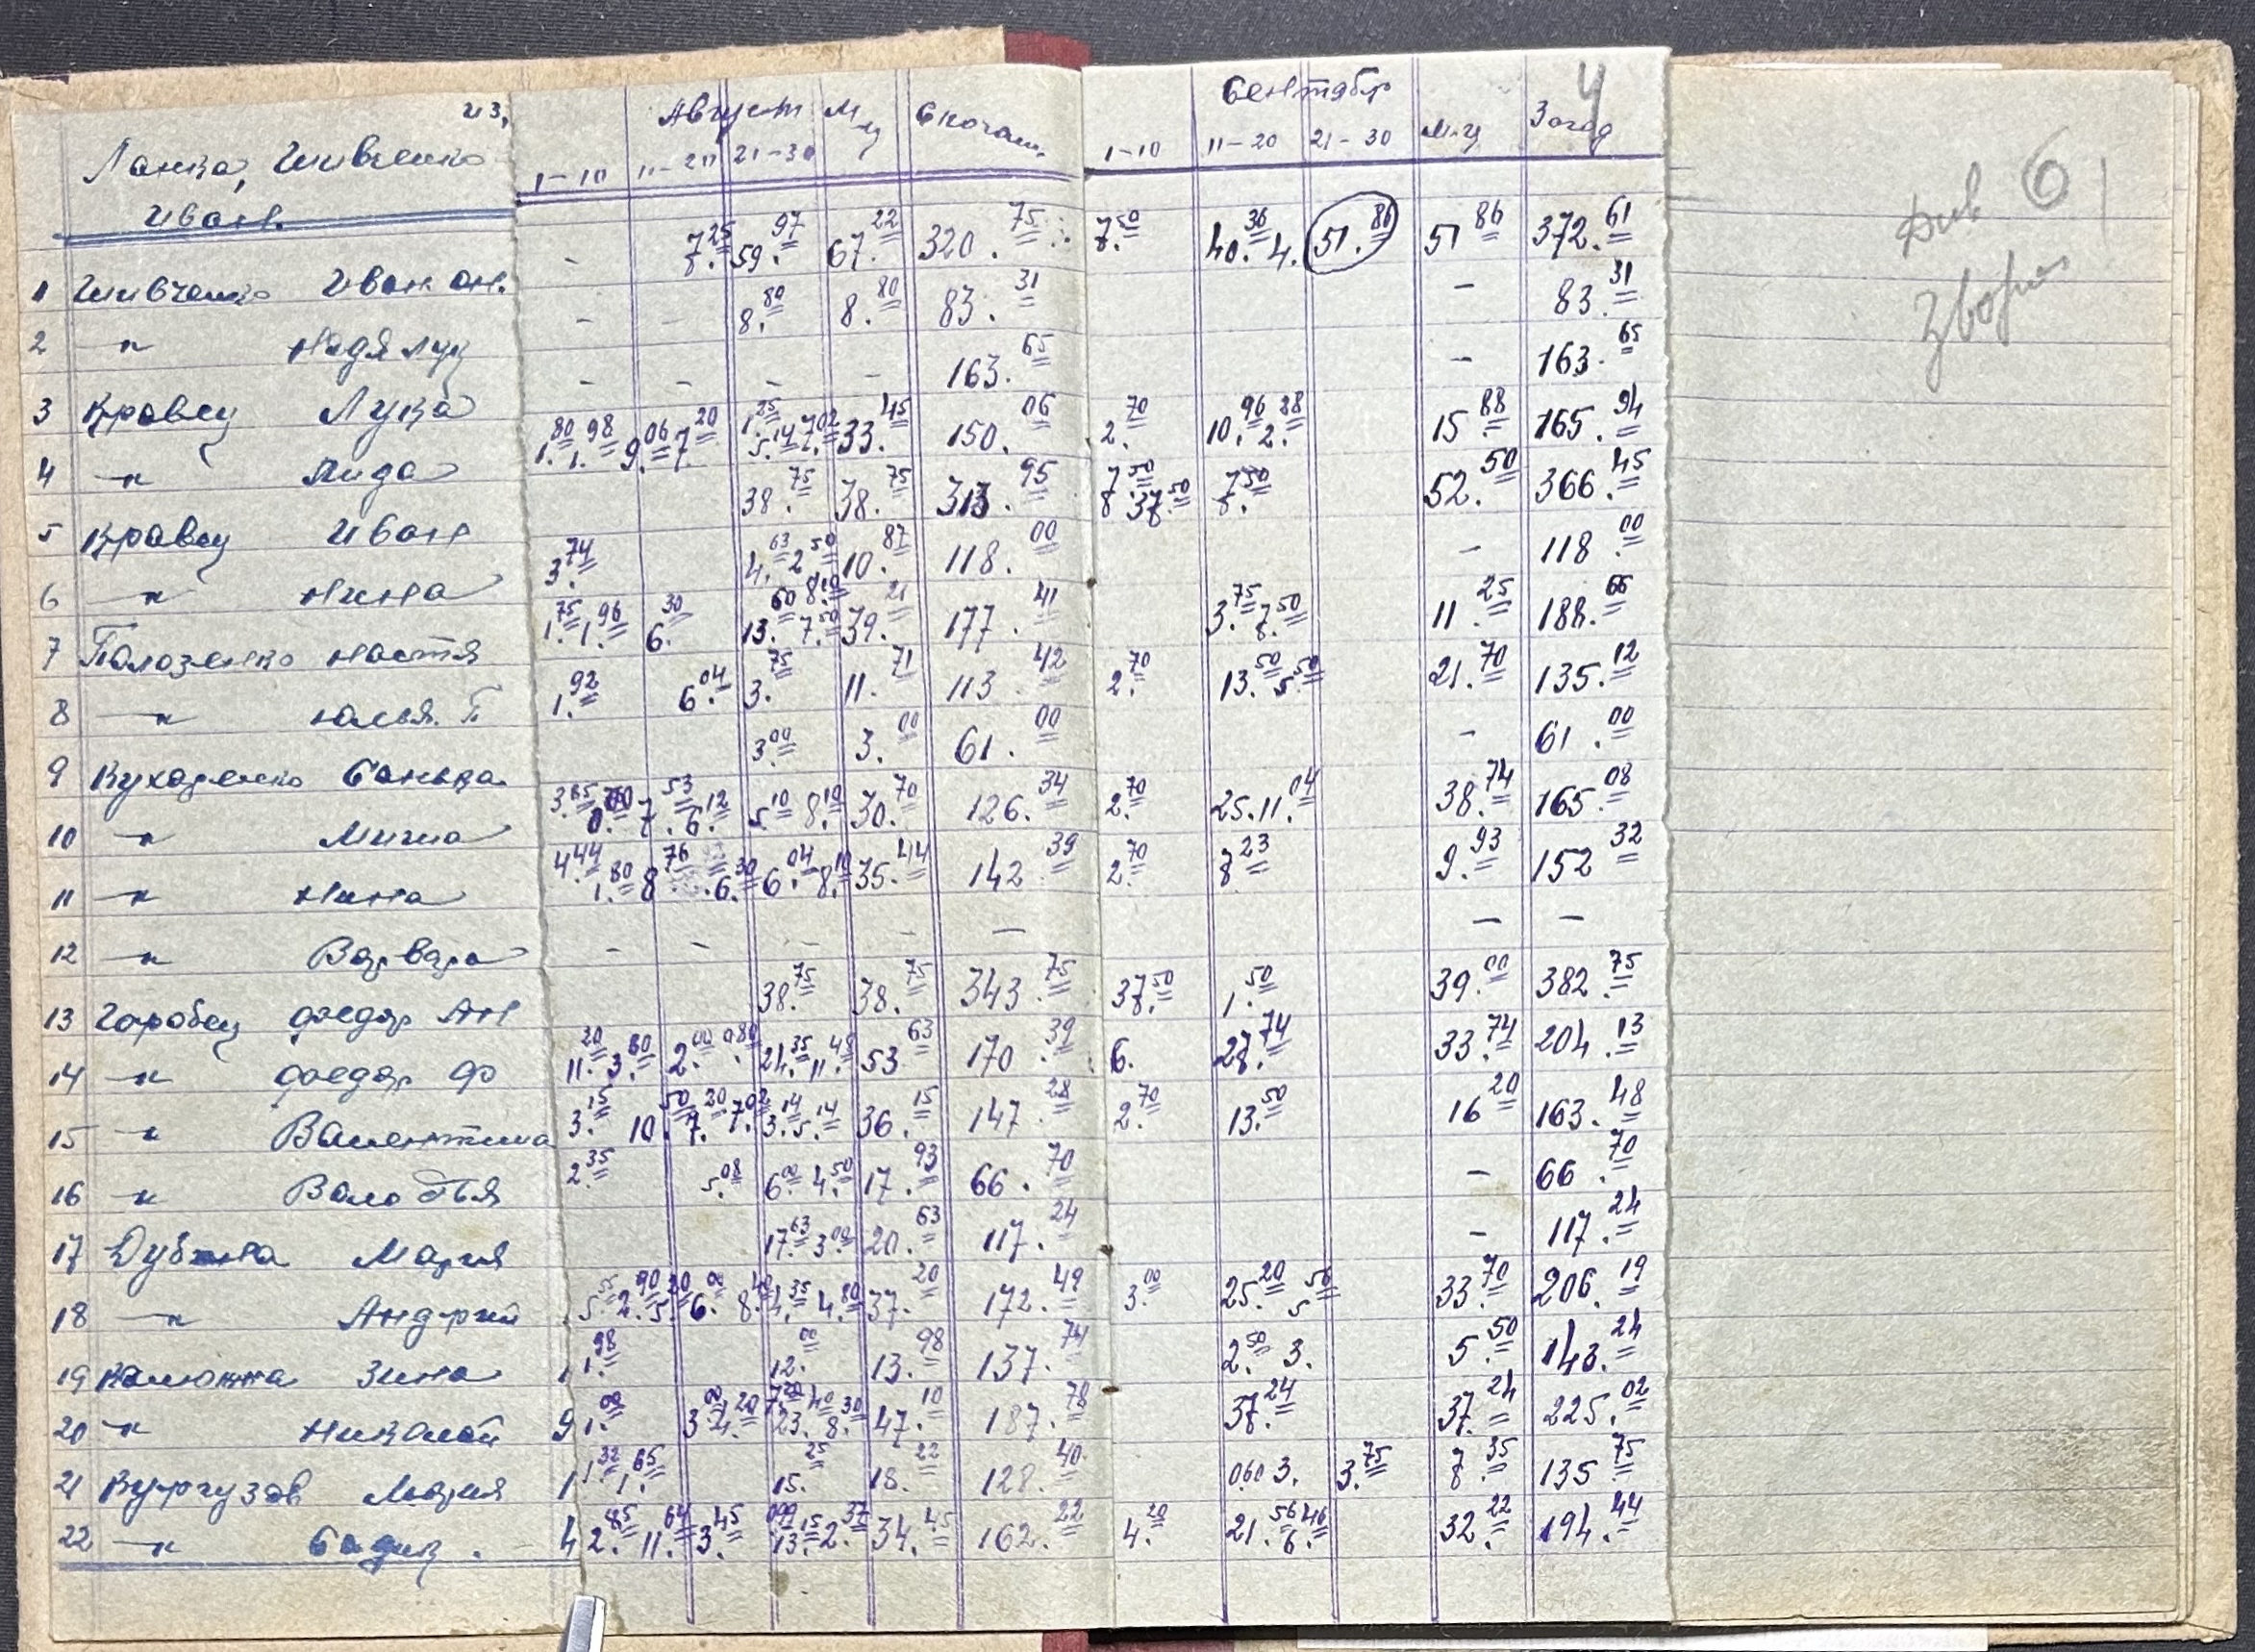 из.
Ланка, Шивченко
Иван.
Август М-ц С почат.
1-10 11-20 21-30
Сентябр
1-10 11-20 21-30 М-ц З огод
4
див 6
зворот
1 Шивченко Иван Он. - 7.25 59.97 67.22 320.75 7.50 40.36 4. 51.86 51.86 372.61
2 -"- Надя Лук - - 8.80 8.80 83.31 - 83.31
3 Кравец Лука - - - - 163.65 - 163.65
4 -"- Лида 1.80 1.98 9.06 7.20 1.25 5.14 7.02 33.45 150.06 2.70 10.96 2.28 15.88 165.94
5 Кравец Иван 38.75 38.75 313.95 7.50 37.50 7.50 52.50 366.45
6 -"- Нина 3.74 4.63 2.50 10.87 118.00 - 118.00
7 Полозенко Настя 1.75 1.96 6.30 13.60 8.10 7.50 39.21 177.41 3.75 7.50 11.25 188.66
8 -"- Юлья. П 1.92 6.04 3.75 11.71 113.42 2.70 13.50 5.50 21.70 135.12
9 Кухаренко Санька 3.00 3.00 61.00 - 61.00
10 -"- Миша 3.85 0.70 7.53 6.12 5.10 8.10 30.70 126.34 2.70 25. 11.04 38.74 165.08
11 -"- Нина 4.44 1.80 8.76 6.30 6.04 8.10 35.44 142.39 2.70 7.23 9.93 152.32
12 -"- Варвара - - - - - - -
13 Горобец Федор Ан 38.75 38.75 343.75 37.50 1.50 39.00 382.75
14 -"- Федор Ф 11.20 3.80 2.00 0.80 24.35 11.48 53.63 170.39 6. 27.74 33.74 204.13
15 -"- Валентина 3.15 10.50 7.20 7.02 3.14 5.14 36.15 147.28 2.70 13.50 16.20 163.48
16 -"- Володья 2.35 5.08 6.00 4.50 17.93 66.70 - 66.70
17 Дубина Мария 17.63 3.00 20.63 117.24 - 117.24
18 -"- Андрий 5.55 2.90 5.20 6.00 8.40 4.35 4.80 37.20 172.49 3.00 25.20 5.50 33.70 206.19
19 Калюжна Зина 1.98 12.00 13.98 137.74 2.50 3. 5.50 143.24
20 -"- Николай 9 1.00 3.00 4.20 7.20 23.40 8.30 47.10 187.78 37.24 37.24 225.02
21 Кургузов Мария 1 1.32 1.65 15.25 18.22 128.40 060 3. 3.75 7.35 135.75
22 -"- Садик. 4 2.85 11.64 3.45 13.15 2.37 34.45 162.22 4.20 21.56 6.46 32.22 194.44